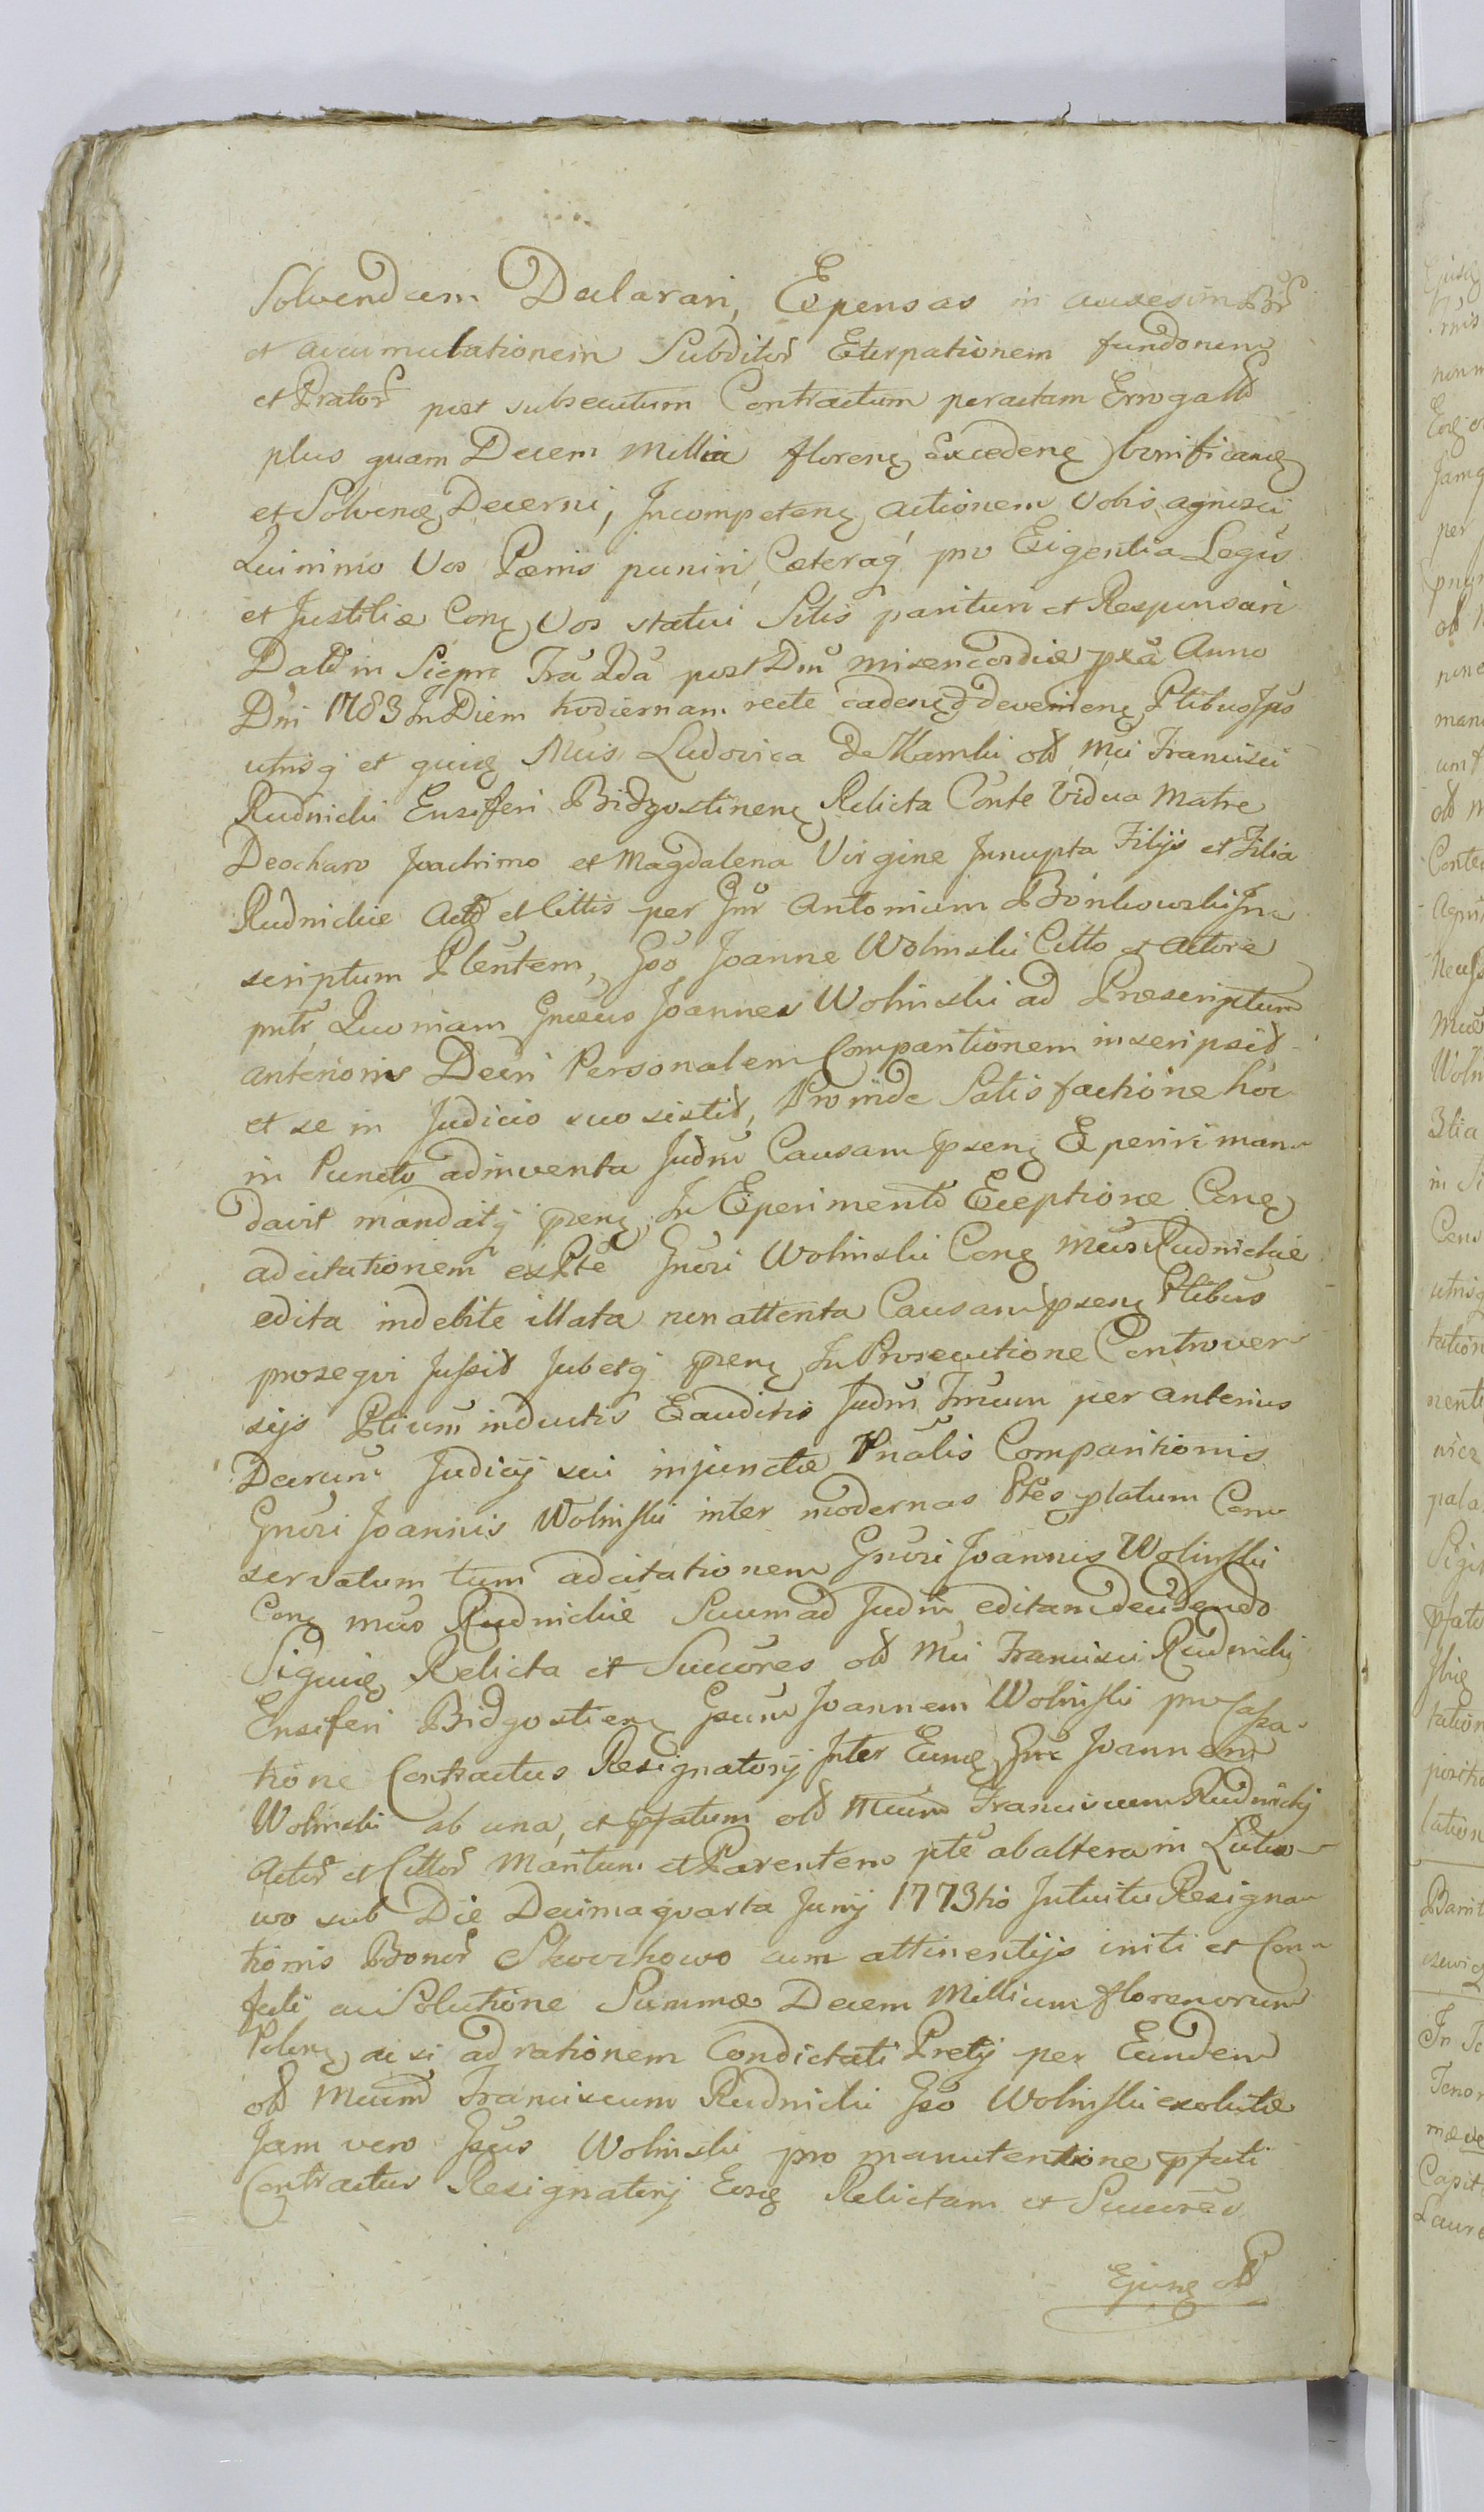 Solvendam Declarari, Expensas in auxesim Bōr
et accumulationem Subditor Exterpationem fundorum
et Prator post subsecutum Contractum peractam Erogatt
plus quam Decem Millia floreng Excedeng bonificang
et Solveng Decerni, Incompeteng actionem Vobis agnisci
Quinimo Vos Pænis puniri, Cæteraq pro Exigentia Legis
et Justitiæ Cong Vos statui Sitis parituri et Responsuri
Datt in Siepre Fra 2da post Dnū misericordiæ pxa Anno
Dni 1783 In Diem hodiernam recte cadeng et deveneng Ptibus Ips
utrisq et quivg Mūs Ludovica de Kamki old Mūi Francisci
Rudnicki Ensiferi Bidgostineng Relicta Conte Vidua Matre
Deocharo Joachimo et Magdalena Virgine Innupta Filijs et Filia
Rudnickie Actt et Cittis per Gnr Antonium Bońkowski In
scriptum Plentem, Gso Joanne Wolinski Citto et Actore
pntr, Quoniam Gneus Joannes Wolinski ad Præscriptum
anterioris Decri Personalem Comparitionem inscripsit
et se in Judicio suo sistit, Proinde Satisfactione hoc
in Puncto adinventa Judm Causam pseng Experiri man
davit mandatq pseng, In Experimento Exceptione Cong
adcitationem ex Pte Gnūri Wolinski Cong Mūs Rudnickie
edita indebite illata non attenta Causam pseng Ptibus
prosequi Jussit Jubetq pseng In Prosecutione Controver
sijs Ptium inductis Exauditis Judm Trnum per anterius
Decrum Judicij sui injunctæ Pnalis Comparitionis
Gnūri Joannis Wolinski inter modernas Ptes platum Con
servatum tum adcitationem Gnūri Joannis Wolinski
Cong mūs Rudnickie Suum ad Judm editam decidendo
Siquig Relicta et Succōres old Mūi Francisci Rudnicki
Ensiferi Bidgostieng Gsum Joannem Wolinski pro Cassa
tione Contractus Resignatorij Inter Eumg Gnr Joannem
Wolinski ab una, et pfatum old Mūum Franciscum Rudnicki
Actor et Cittor Maritum et Parentem pte ab altera in Lutw
wo sub Die Decima quarta Junij 1773tio Intuitu Resigna
tionis Bonor Skoczkowo cum attinentijs initi et Con
fecti ac Solutione Summæ Decem Millium florenorum
Poleng ac si ad rationem Condictati Pretij per Eundem
old Mūum Franciscum Rudnicki Gso Wolinski exolutæ
Jam vero Gsus Wolinski pro manutentione pfati
Contractus Resignatorij Eosg Relictam et Succōres
Ejusg old